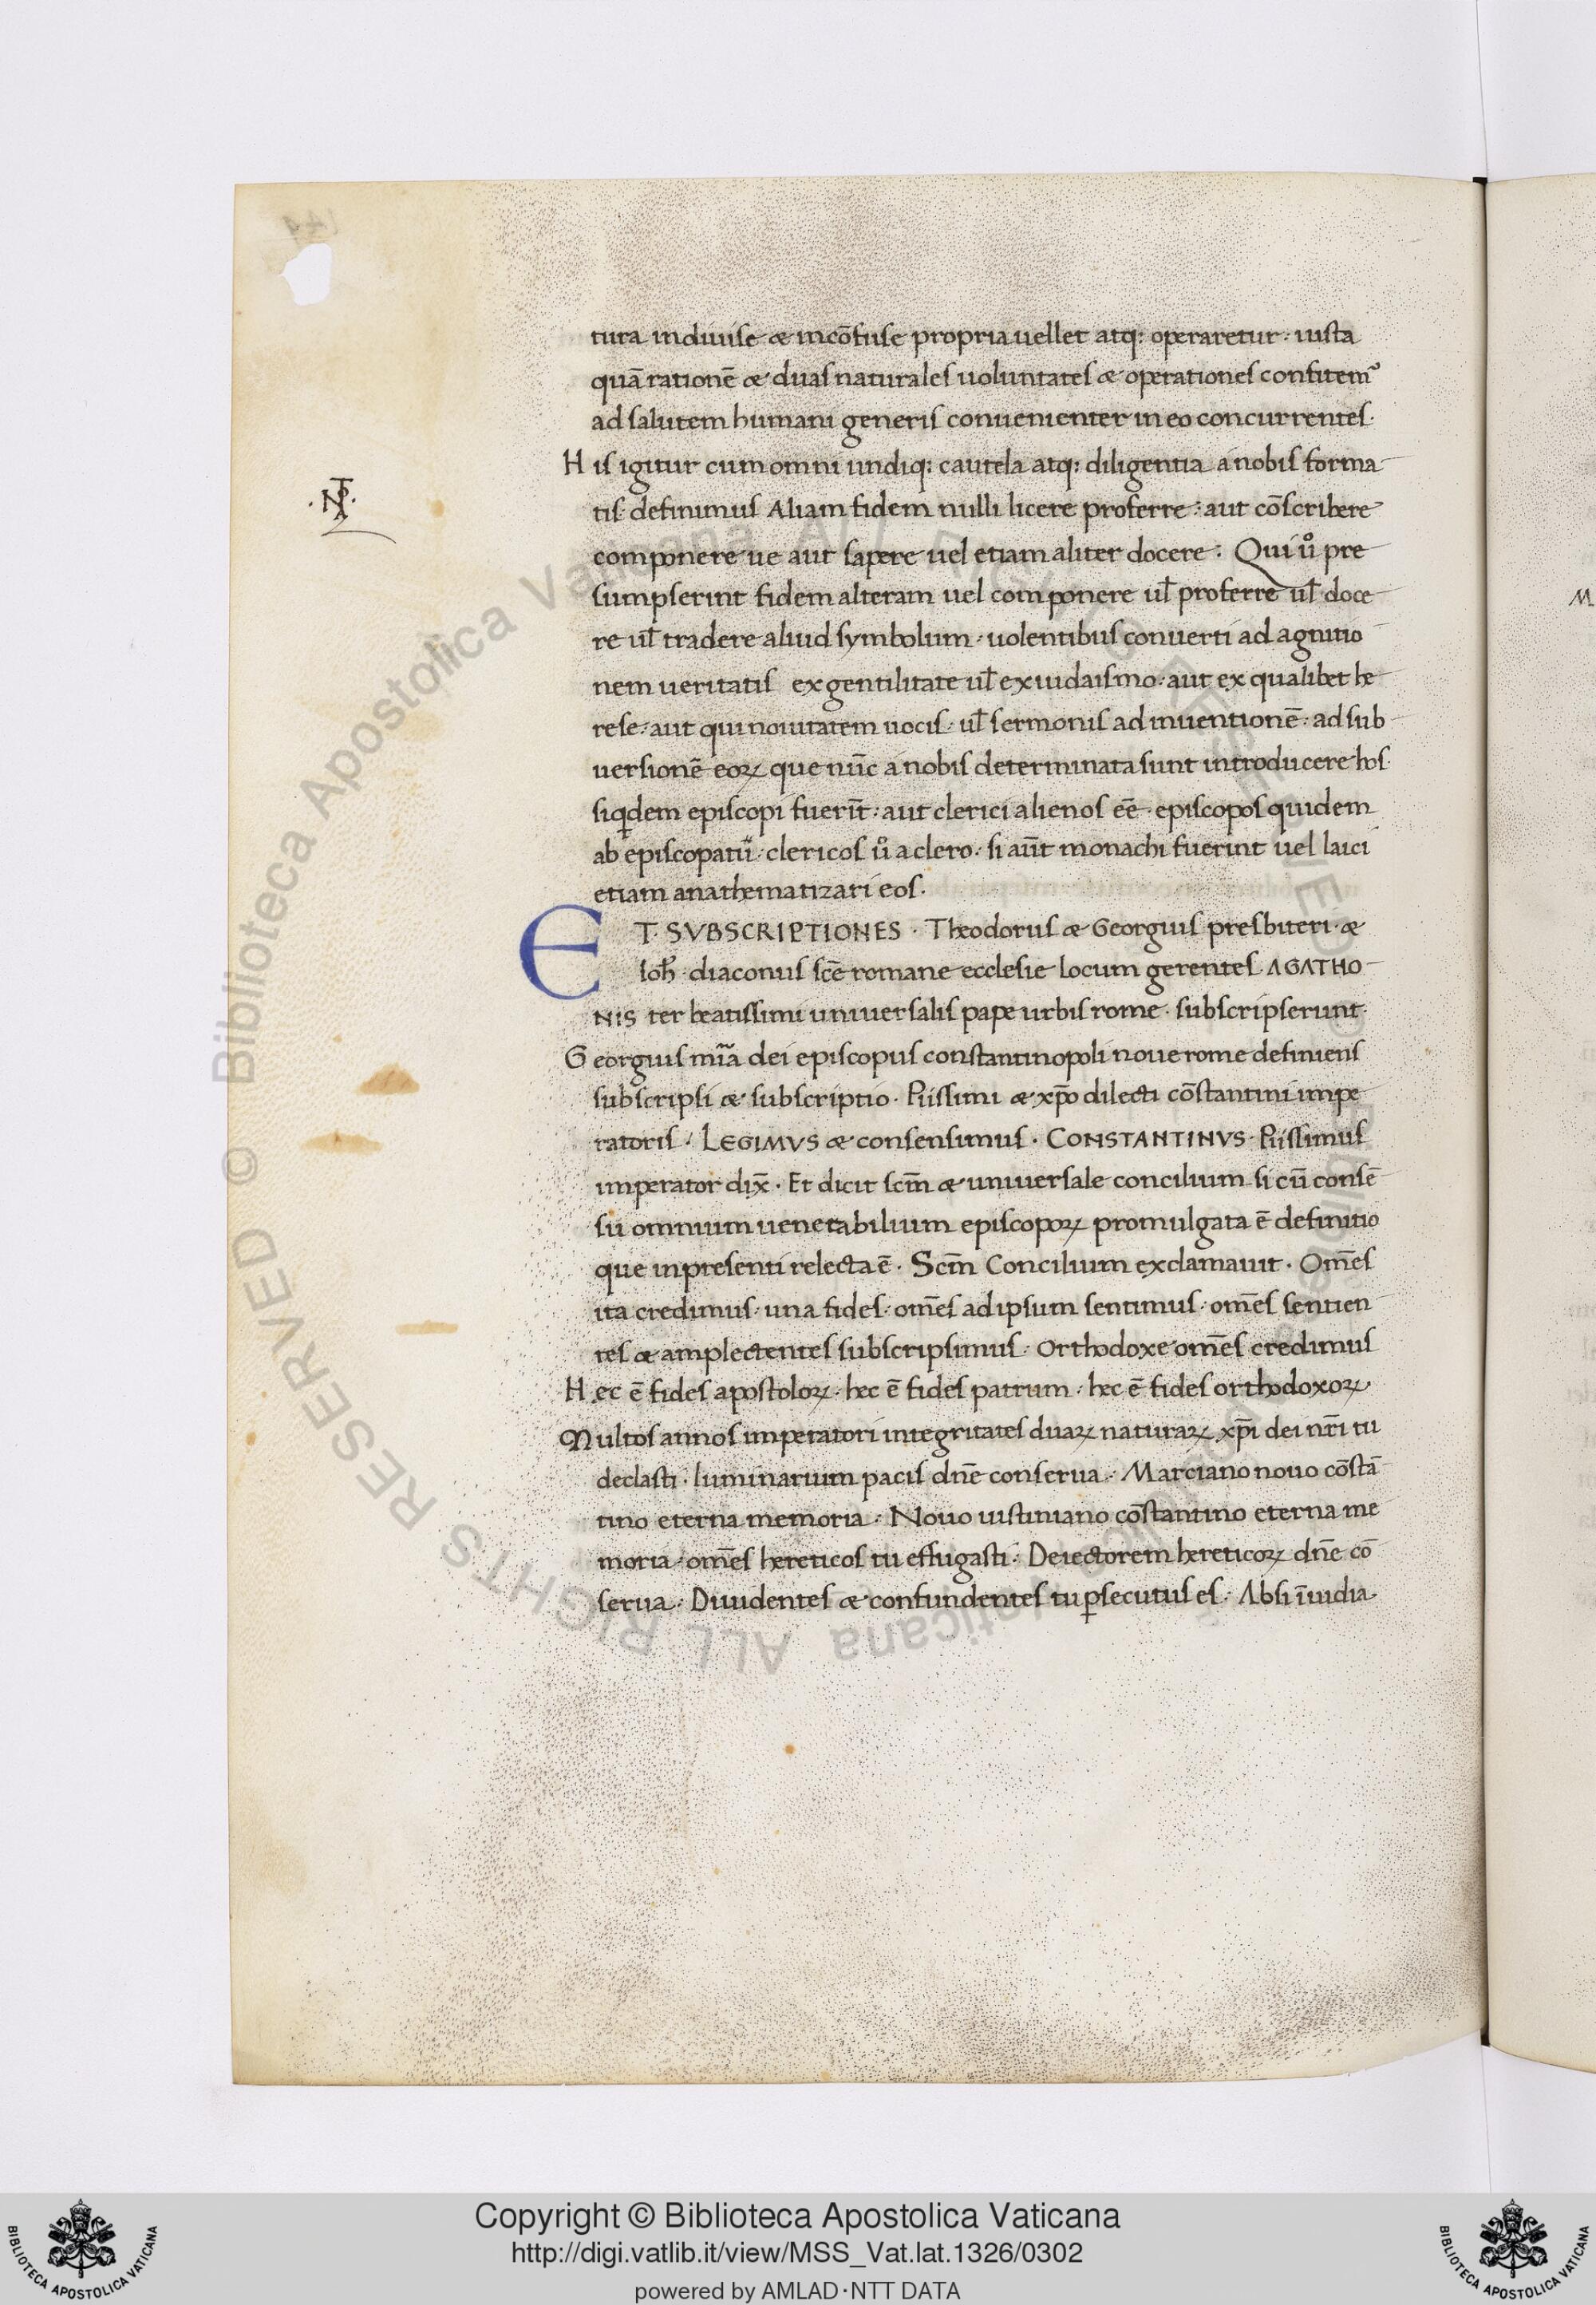 tura indiuise & incōfuse propria uellet atq: operaretur · iusta
quā rationē & duas naturales uoluntates & operationes confitemꝰ
ad salutem humani generis conuenienter in eo concurrentes ·
His igitur cum omni undiq: cautela atq: diligentia a nobis forma-
NT
tis · definimus Aliam fidem nulli licere proferre · aut cōscribere
componere ue aut sapere uel etiam aliter docere · Qui uͦ pre
sumpserint fidem alteram uel componere ul̄ proferre ul̄ doce
re ul̄ tradere aliud symbolum · uolentibus conuerti ad agnitio
nem ueritatis ex gentilitate ul̄ ex iudaismo · aut ex qualibet he
rese · aut qui nouitatem uocis · ul̄ sermonis ad inuentionē · ad sub
uersionē eoꝝ que nūc a nobis determinata sunt introducere hos ·
siqͥdem episcopi fuerīt · aut clerici alienos eē · episcopos quidem
ab episcopatū · clericos uͦ a clero · si aūt monachi fuerint uel laici
etiam anathematizari eos ·
ET · SVBSCRIPTIONES · Theodorus & Georgius presbiteri · &
Ioh̄ · diaconus scē romane ecclesie locum gerentes AGATHO
NIS ter beatissimi uniuersalis pape urbis rome · subscripserunt ·
Georgius mīa dei episcopus constantinopoli noue rome definiens
subscripsi & subscriptio · Piissimi & xp̄o dilecti cōstantini impe
ratoris · LEGIMVS & consensimus · CONSTANTINVS · Piissimus
imperator dix̄ · Et dicit scm̄ & uniuersale concilium si cū consē
su omnium uenerabilium episcopoꝝ promulgata ē definitio
que inpresenti relecta ē · Scm̄ Concilium exclamauit · Om̄es
ita credimus · una fides · om̄es ad ipsum sentimus · om̄es sentien
tes & amplectentes subscripsimus · Orthodoxe om̄es credimus
Hec ē fides apostoloꝝ · hec ē fides patrum · hec ē fides orthodoxoꝝ ·
Multos annos imperatori integritates duaꝝ naturaꝝ xp̄i dei nr̄i tu
declasti · luminarium pacis dn̄e conserua · Marciano nouo cōstā
tino eterna memoria · Nouo iustiniano cōstantino eterna me
moria · om̄es hereticos tu effugasti · Deiectorem hereticoꝝ dn̄e cō
serua · Diuidentes & confundentes tu ꝑsecutus es · Absi īuidia ·
Copyright © Biblioteca Apostolica Vaticana
http://digi.vatlib.it/view/MSS_Vat.lat.1326/0302
powered by AMLAD·NTT DATA